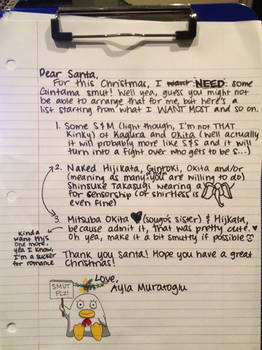 Dear Santa,
For this Christmas, I want NEED some
Gintama smut! Well yea, guess you might not
be able to arrange that for me, but here's a
list starting from what I WANT MOST and so on:
1. Some S&M (light though, I'm not THAT
Kinky) of Kagura and Okita (well actually
it will probably more like S&S and it will
turn into a fight over who gets to be S...)
2. Naked Hijikata, Gintoki, Okita and/or
(meaning as many you are willing to do)
Shinsuke Takasugi wearing a
for sensorship (or shirtless is
even fine)
3. Mitsuba Okita (Sougo's sister) & Hijikata,
because admit it, that was pretty cute.
Oh yea, make it a bit smutty if possible
Kinda
want this
one more,
yea I know,
I'm a sucker
for romance
Thank you Santa! Hope you have a great
Christmas!
Love,
Ayla Muratoglu
SMUT
PLZ!